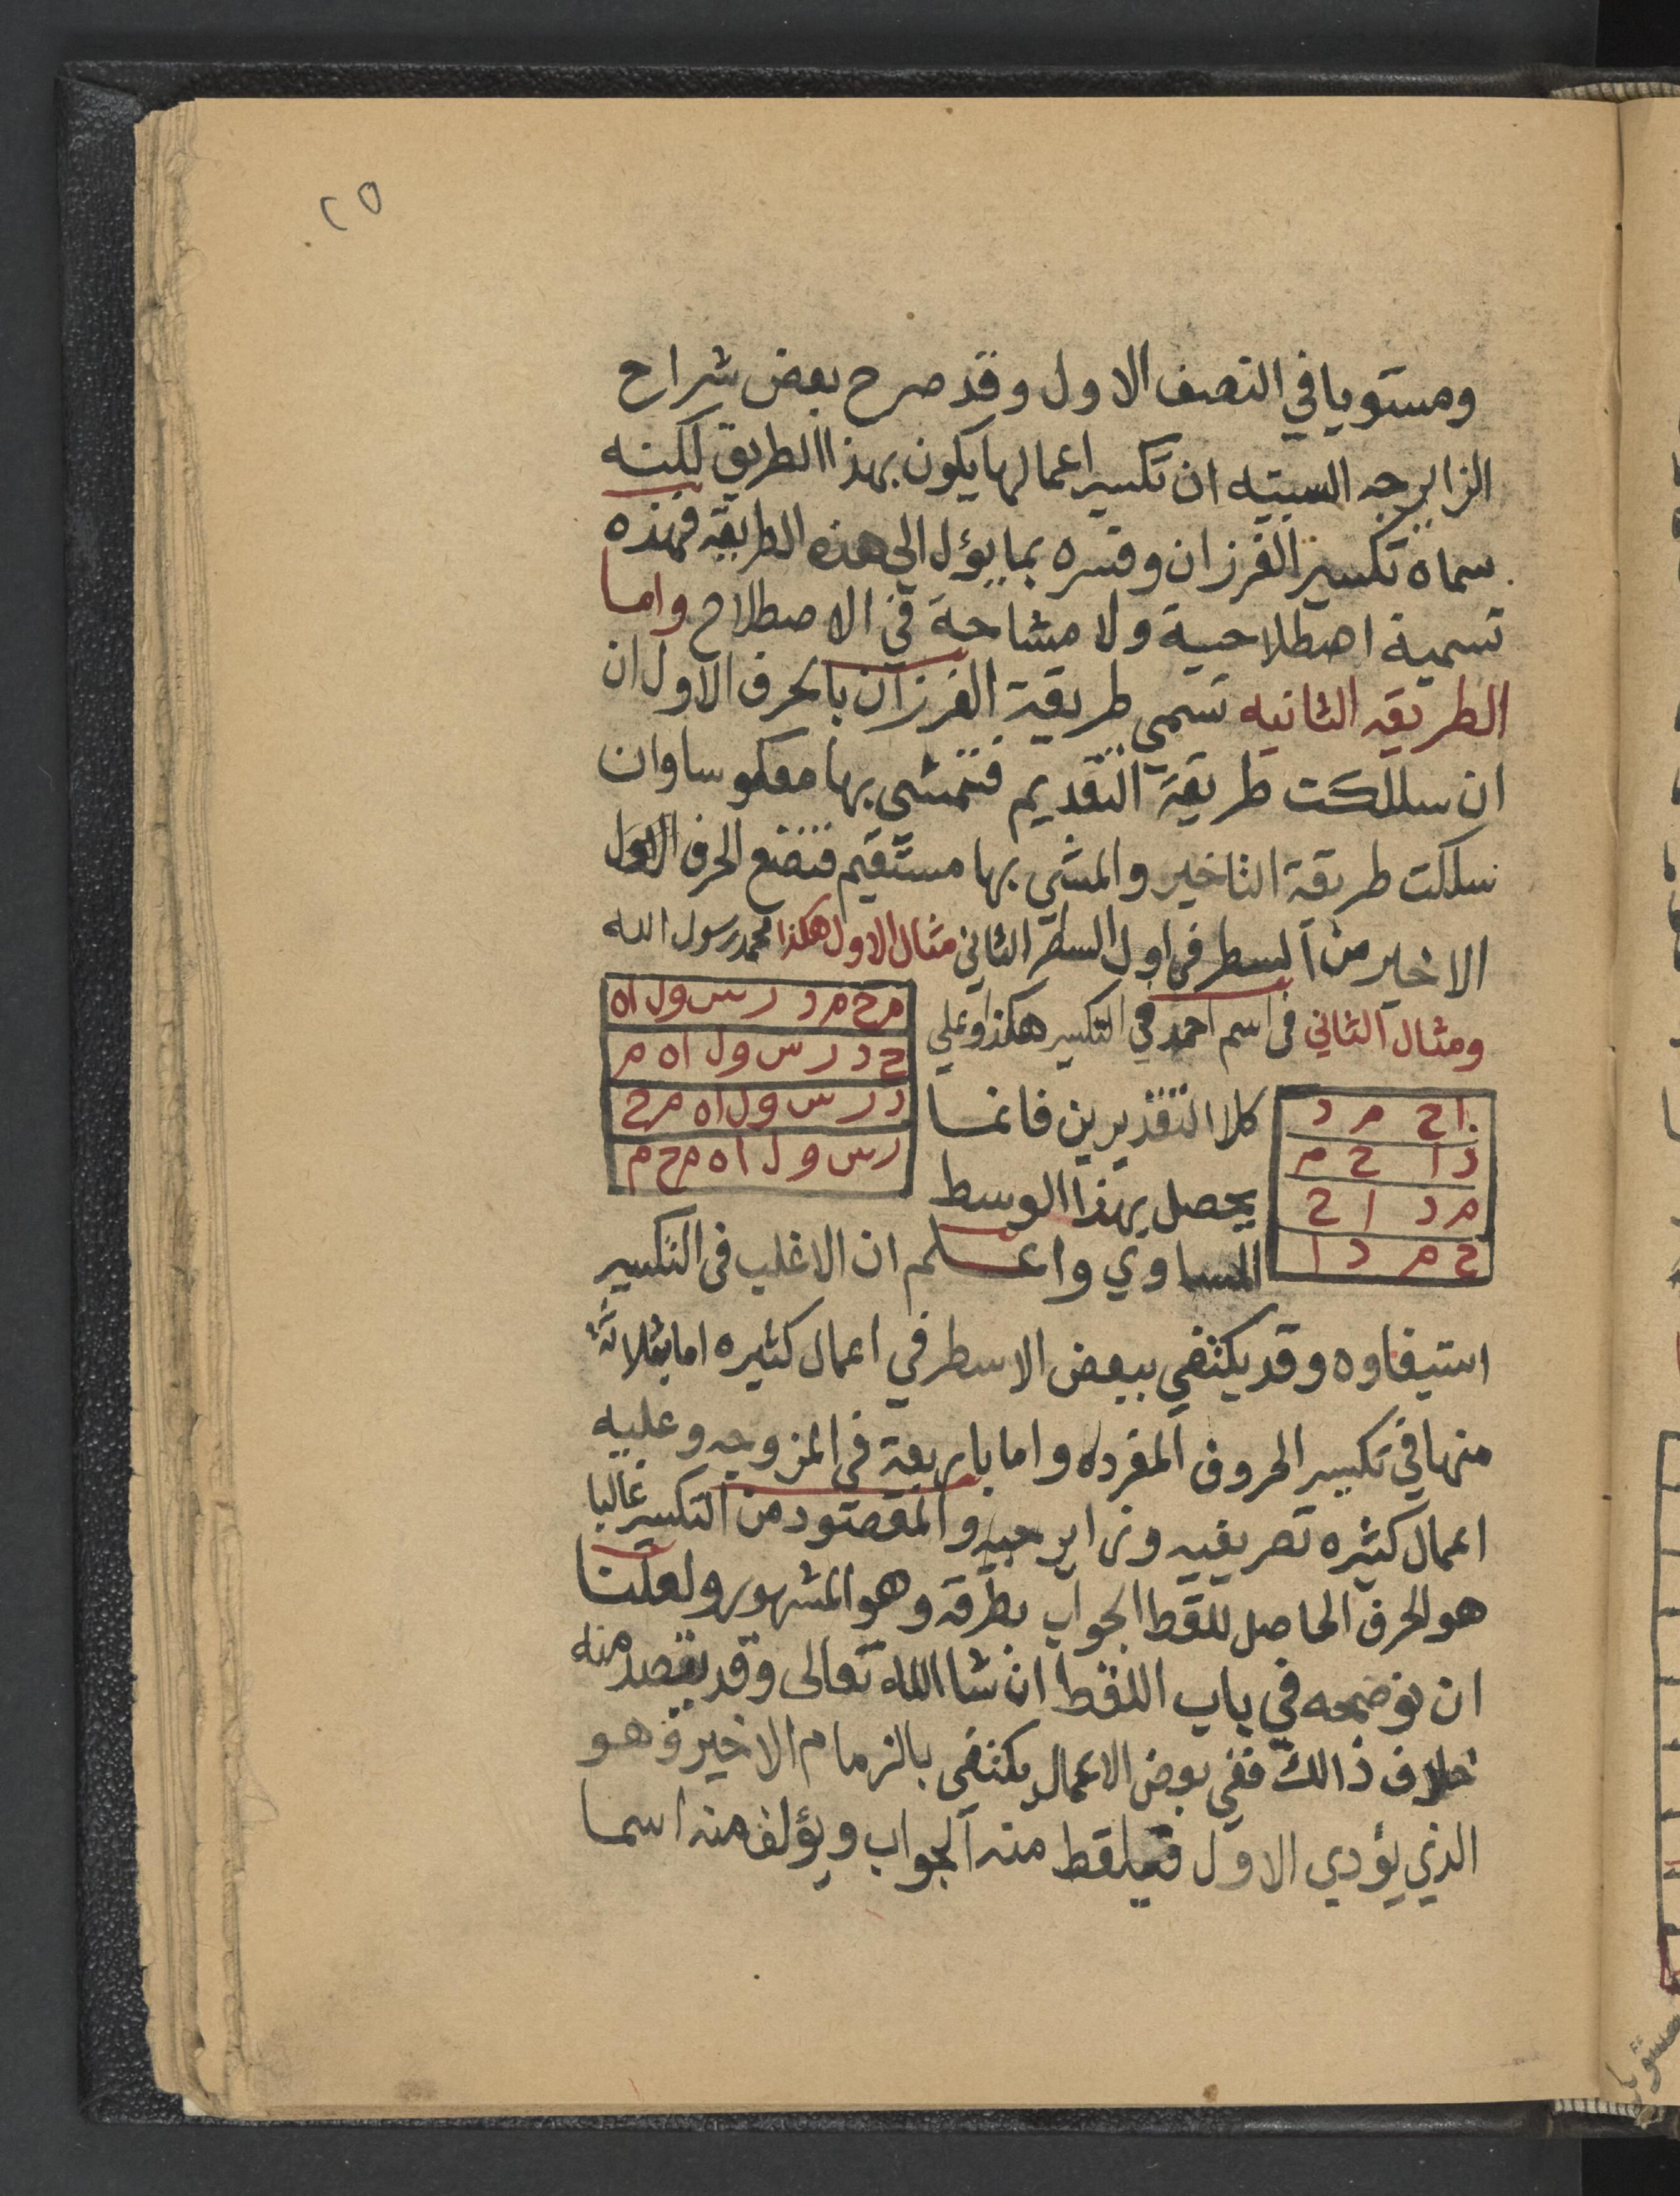 ٢٥
ومستويا في النصف الاول وقد صرح بعض شراح
الزايرجه السبتيه ان تكسير اعمالها يكون بهذا الطريق لكنه
سماه تكسير الفرزان وفسره بما يؤل الي هذه الطريقه فهذه
تسمية اصطلاحية ولا مشاحة في الاصطلاح واما
الطريقه الثانيه تسمي طريقة الفرزان بالحرف الاول ان
ان سللكت طريقة التقديم فتمشي بها معكوسا وان
سلكت طريقة التاخير والمشي بها مستقيم فتضع الحرف الاول
الاخير من السطر في اول السطر الثاني مثال الاول هكذا محمد رسول الله
ومثال الثاني في اسم احمد في التكسير هكذا وعلي
م ح م د ر س و ل ا ه
ح د ر س و ل ا ه م
د ر س و ل ا ه م ح
ر س و ل ا ه م ح م
كلا التقديرين فانما
يحصل بهذا الوسط
ا ح م د
د ا ح م
م د ا ح
ح م د ا
المساوي واعلم ان الاغلب في التكسير
استيفاوه وقد يكتفي ببعض الاسطر في اعمال كثيره اما بثلاثة
منها في تكسير الحروف المفرده واما باربعة في المزوجه وعليه
اعمال كثيره تصريفيه وزايرجيه والمقصود من التكسير غالبا
هو الحرف الحاصل للقط الجواب بطرقه وهو المشهور ولعلنا
ان نوضحه في باب اللقط ان شا الله تعالى وقد يقصد منه
خلاف ذالك ففي بعض الاعمال يكتفي بالزمام الاخير وهو
الذي يؤدي الاول فيلقط منه الجواب ويؤلف منه اسما